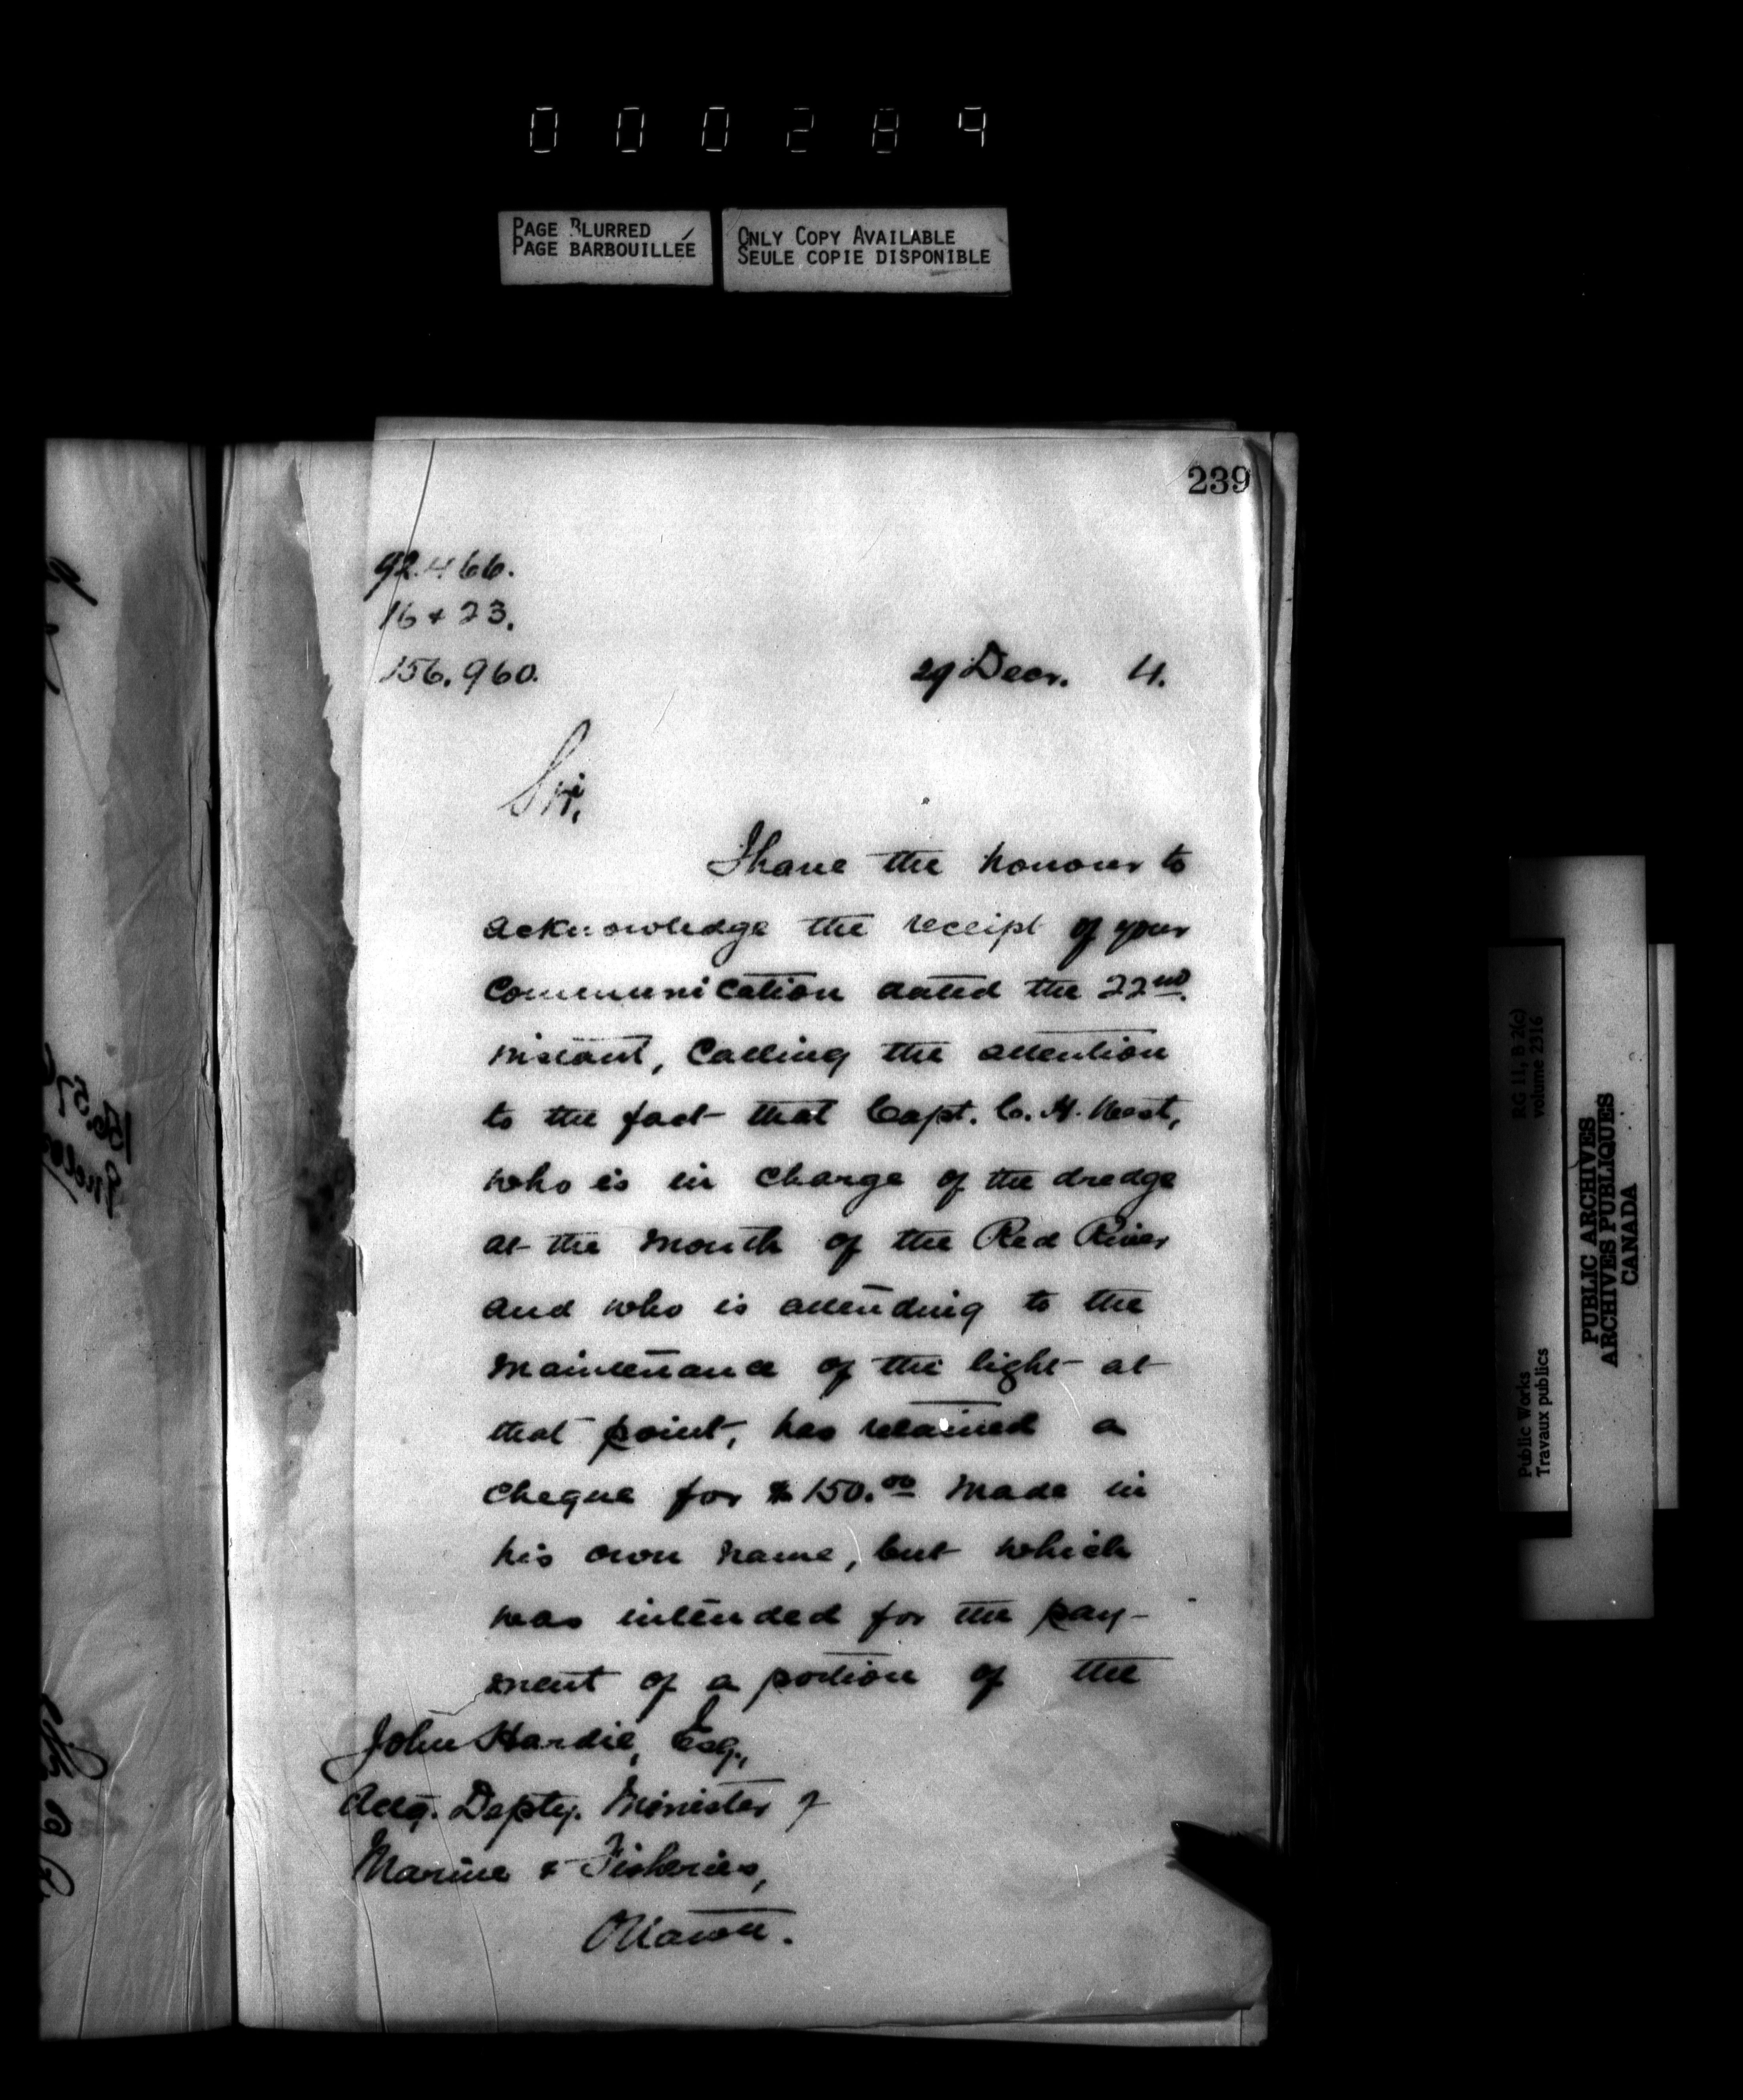 000289
PAGE BLURRED
PAGE BARBOUILLÉE
ONLY COPY AVAILABLE
SEULE COPIE DISPONIBLE
239
92.466.
16 & 23.
156.960.
29 Decr. 4.
Sir,
I have the honour to
acknowledge the receipt of your
communication dated the 22nd
instant, calling the attention
to the fact that Capt. C. H. West,
who is in charge of the dredge
at the mouth of the Red River
and who is attending to the
maintenance of the light at
that point, has retained a
cheque for $150.00 made in
his own name, but which
was intended for the pay-
ment of a portion of the
John Hardie, Esq.,
Actg. Depty. Minister of
Marine & Fisheries,
Ottawa.
RG 11, B 2(c)
volume 2316
Public Works
Travaux publics
PUBLIC ARCHIVES
ARCHIVES PUBLIQUES
CANADA